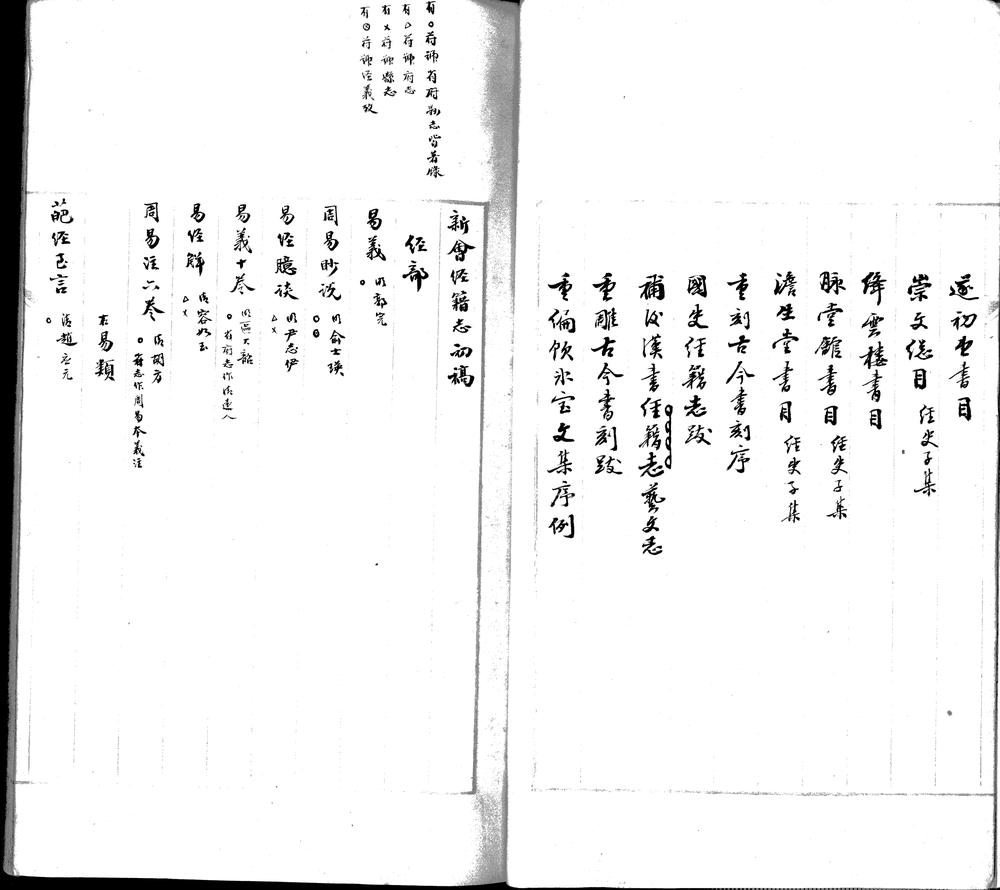 遂初堂書目
崇文總目 經史子集
絳雲樓書目
脉望館書目 經史子集
澹生堂書目 經史子集
重刻古今書刻序
國史經籍志跋
補後漢書經籍志藝文志
重雕古今書刻跋
重編飲冰室文集序例
有○符諦省府縣志皆著錄
有△符諦府志
有×符諦縣志
有◎符諦經義攷
新會經籍志初稿
經部
易義 明郭完
○
周易眇說 明俞士瑛
○◎
易經臆談 明尹志伊
△×
易義十卷 明區大韶
○省府志作清遠人
易經解 清容如玉
△×
周易注六卷 清胡方
○縣志作周易本義注
右易類
葩經正言 清趙應元
○